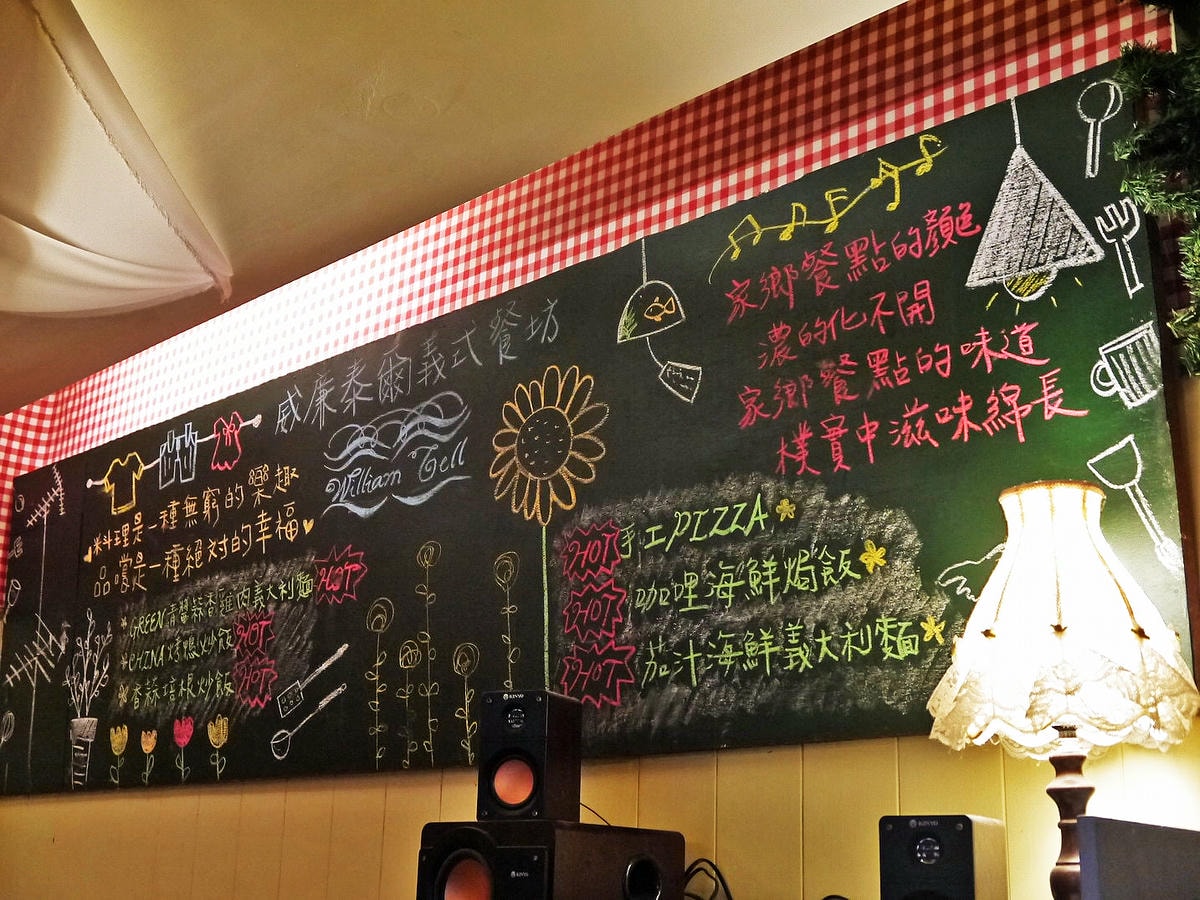 威廉泰爾義式餐坊
William Tell
料理是一種無窮的樂趣
品嚐是一種絕對的幸福
GREEN青醬蒜香雞肉義大利麵 HOT
CHINA 炒飯 HOT
香蒜培根炒飯 HOT
家鄉餐點的顏色
濃的化不開
家鄉餐點的味道
樸實中滋味綿長
HOT 手工PIZZA
HOT 咖哩海鮮焗飯
HOT 茄汁海鮮義大利麵
KINYO
KINYO
KINYO